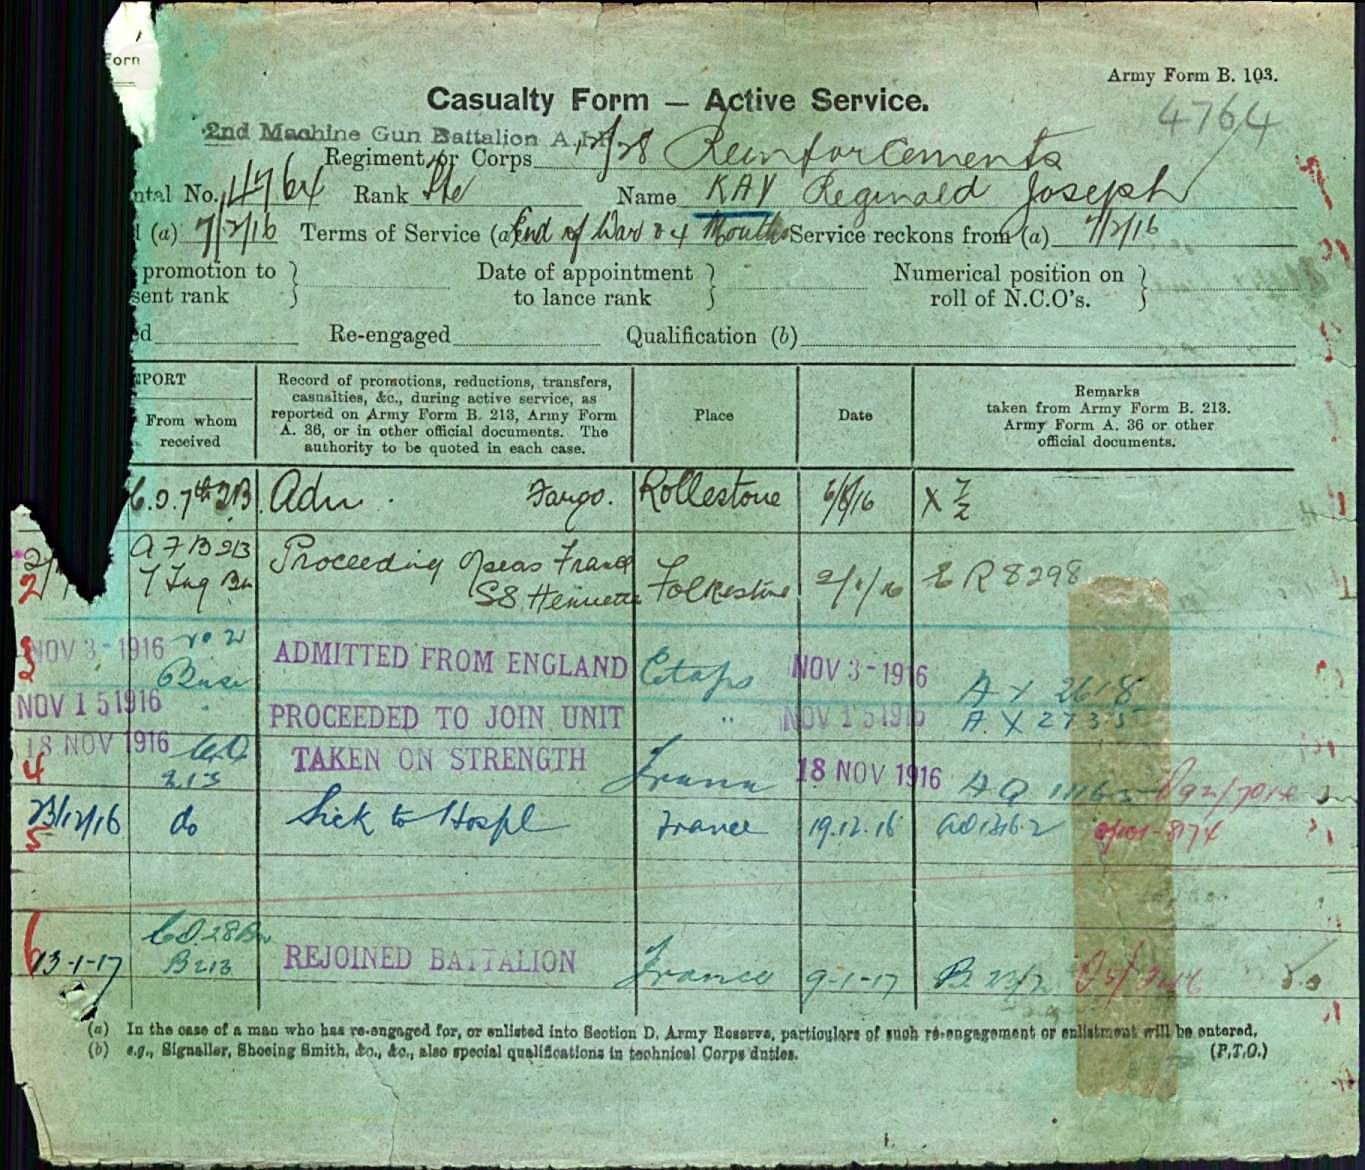 Form
Army Form B. 103.
Casualty Form — Active Service.
4764
2nd Machine Gun Battalion A.I.F.
Regiment or Corps 12/28 Reinforcements
ntal No. 4764 Rank Pte Name KAY Reginald Joseph
(a) 7/2/16 Terms of Service (a) End of War & 4 Months Service reckons from (a) 7/2/16
promotion to sent rank } Date of appointment to lance rank } Numerical position on roll of N.C.O's. }
ed Re-engaged Qualification (b)
PORT
From whom received
Record of promotions, reductions, transfers, casualties, &c., during active service, as reported on Army Form B. 213, Army Form A. 36, or in other official documents. The authority to be quoted in each case.
Place
Date
Remarks taken from Army Form B. 213, Army Form A. 36 or other official documents.
C.O. 7th TB Adm. Fargo. Rollestone 6/8/16 X 7/2
2 A F B 213 7 Trng Bn Proceeding Oseas France SS Henrietta Folkestone 2/ /16 E R 8298
3 NOV 3 - 1916 Base ADMITTED FROM ENGLAND Etaps NOV 3 - 1916 A X 2618
NOV 15 1916 PROCEEDED TO JOIN UNIT " NOV 15 1916 A. X 2735
4 18 NOV 1916 CO 213 TAKEN ON STRENGTH France 18 NOV 1916
23/12/16 5 do Sick to Hospl France 19.12.16
6 13-1-17 CO. 28 Bn B213 REJOINED BATTALION France 9-1-17
(a) In the case of a man who has re-engaged for, or enlisted into Section D, Army Reserve, particulars of such re-engagement or enlistment will be entered.
(b) e.g., Signaller, Shoeing Smith, &c., &c., also special qualifications in technical Corps duties.
(P.T.O.)